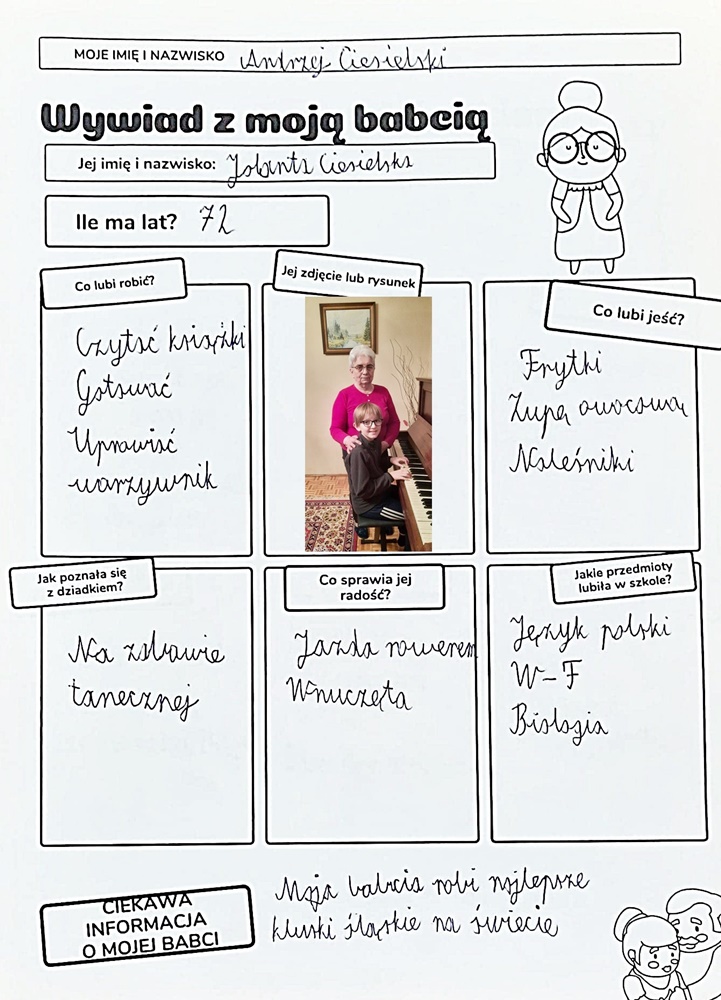 MOJE IMIĘ I NAZWISKO Andrzej Ciesielski
Wywiad z moją babcią
Jej imię i nazwisko: Jolanta Ciesielska
Ile ma lat? 72
Co lubi robić?
Czytać książki
Gotować
Uprawiać
warzywnik
Jej zdjęcie lub rysunek
Co lubi jeść?
Frytki
Zupę owocową
Naleśniki
Jak poznała się
z dziadkiem?
Na zabawie
tanecznej
Co sprawia jej
radość?
Jazda rowerem
Wnuczęta
Jakie przedmioty
lubiła w szkole?
Język polski
W-F
Biologia
CIEKAWA
INFORMACJA
O MOJEJ BABCI
Moja babcia robi najlepsze
kluski śląskie na świecie